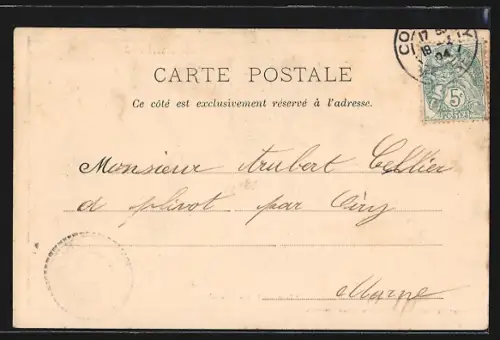 CARTE POSTALE
Ce côté est exclusivement réservé à l'adresse.
Monsieur Aubert Cellier
à plivot par Oiry
Marne
CO
17
18
04
5
POSTES